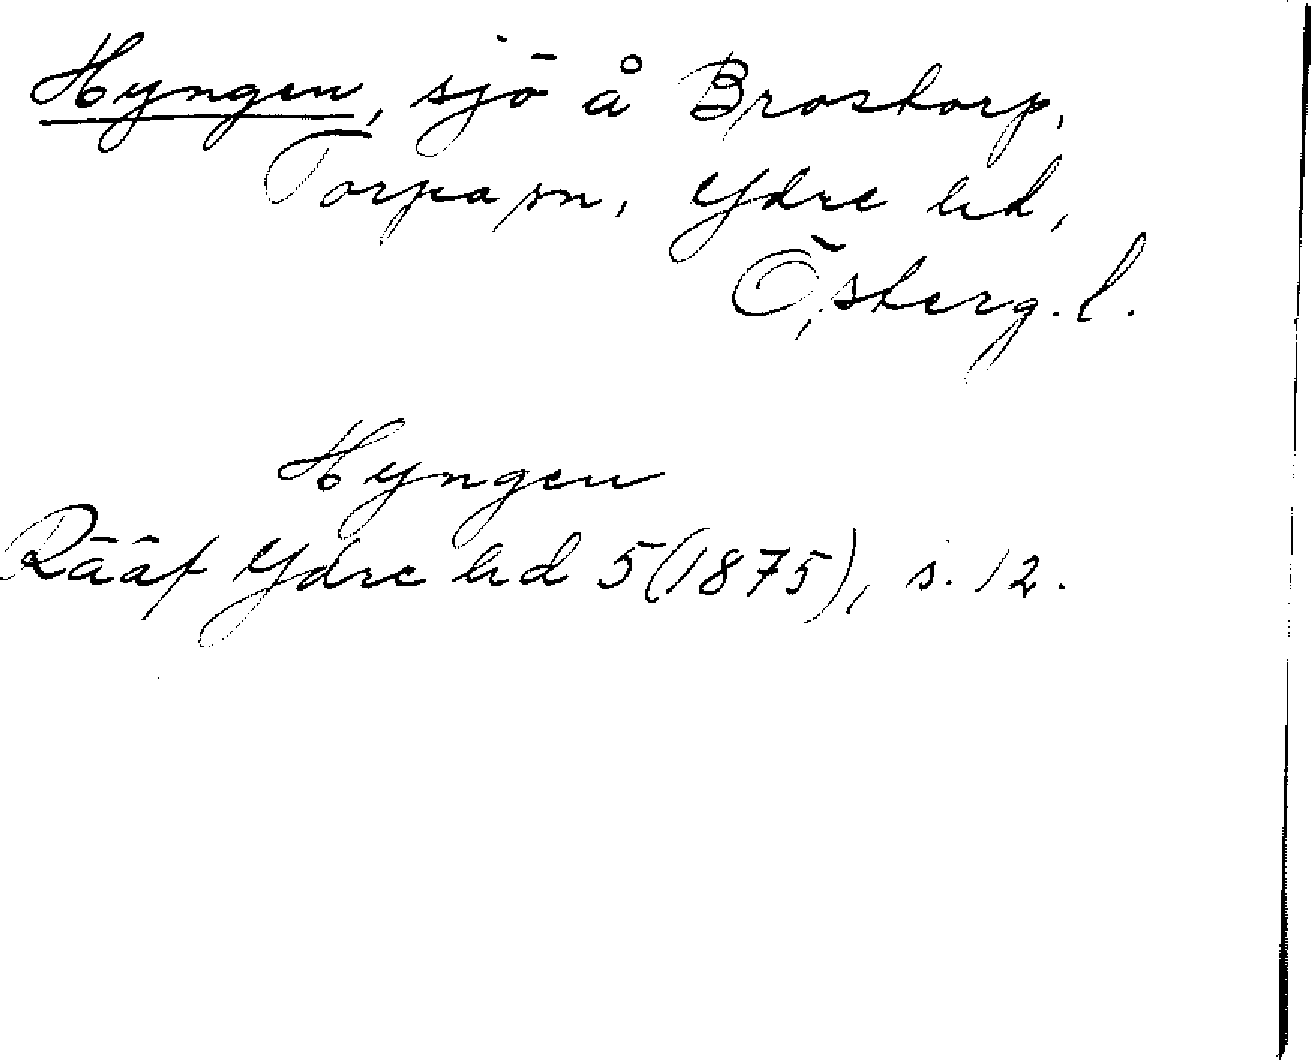 Hyngen, sjö å Brostorp,
Torpa sn, Ydre hd,
Östergl.
Hyngen
Rääf Ydre hd 5 (1875), s. 12.